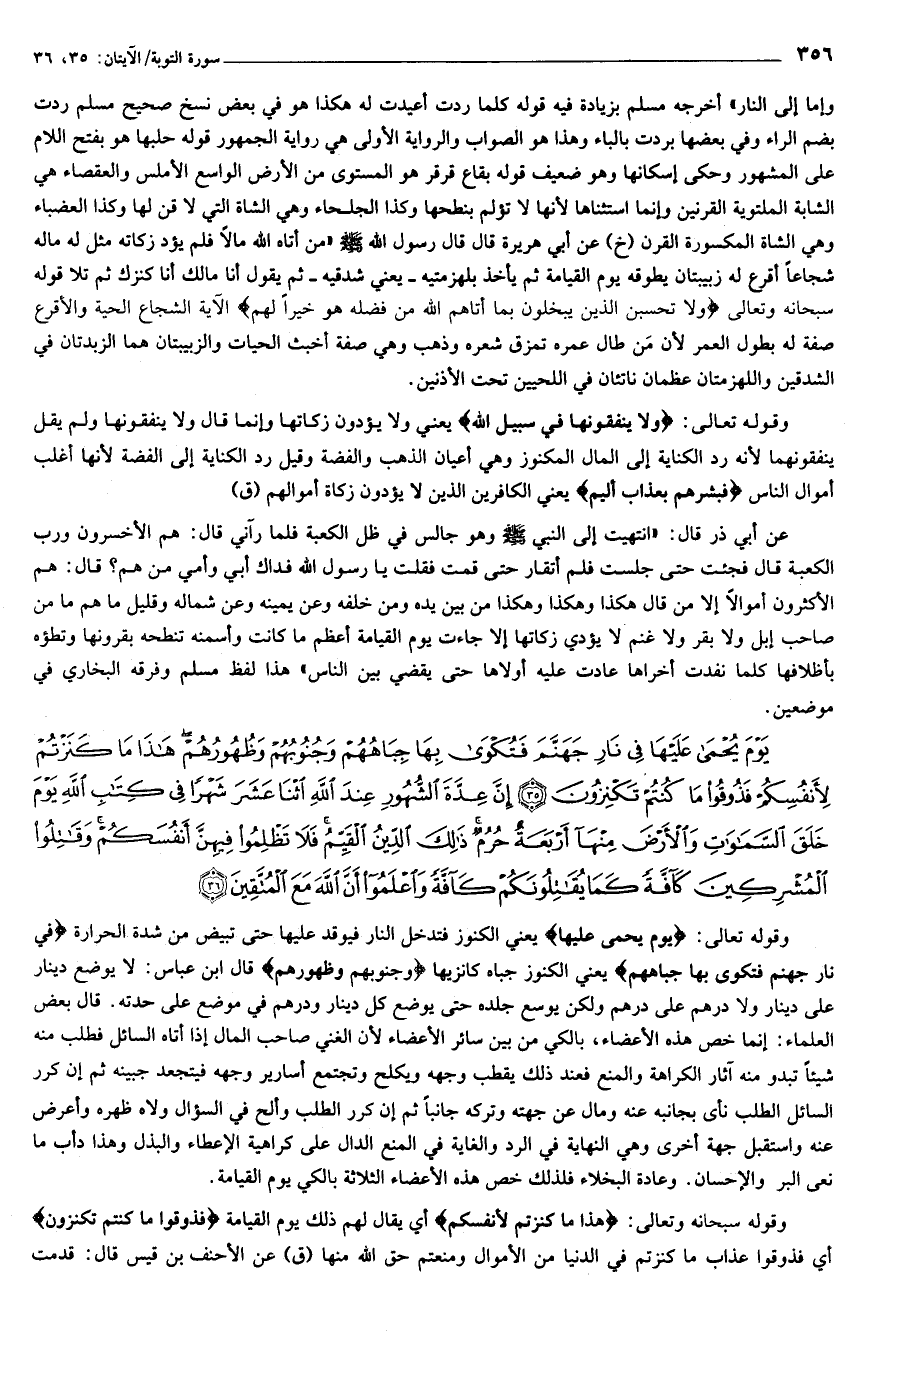 ٣٥٦ سورة التوبة/ الآيتان: ٣٥، ٣٦
وإما إلى النار» أخرجه مسلم بزيادة فيه قوله كلما ردت أعيدت له هكذا هو في بعض نسخ صحيح مسلم ردت
بضم الراء وفي بعضها بردت بالباء وهذا هو الصواب والرواية الأولى هي رواية الجمهور قوله حلبها هو بفتح اللام
على المشهور وحكى إسكانها وهو ضعيف قوله بقاع قرقر هو المستوى من الأرض الواسع الأملس والعقصاء هي
الشابة الملتوية القرنين وإنما استثناها لأنها لا تؤلم بنطحها وكذا الجلحاء وهي الشاة التي لا قن لها وكذا العضباء
وهي الشاة المكسورة القرن (خ) عن أبي هريرة قال قال رسول الله ﷺ «من أتاه الله مالاً فلم يؤد زكاته مثل له ماله
شجاعاً أقرع له زبيبتان يطوقه يوم القيامة ثم يأخذ بلهزمتيه ـ يعني شدقيه ـ ثم يقول أنا مالك أنا كنزك ثم تلا قوله
سبحانه وتعالى ﴿ولا تحسبن الذين يبخلون بما أتاهم الله من فضله هو خيراً لهم﴾ الآية الشجاع الحية والأقرع
صفة له بطول العمر لأن مَن طال عمره تمزق شعره وذهب وهي صفة أخبث الحيات والزبيبتان هما الزبدتان في
الشدقين واللهزمتان عظمان ناتئان في اللحيين تحت الأذنين.
وقوله تعالى: ﴿ولا ينفقونها في سبيل الله﴾ يعني ولا يؤدون زكاتها وإنما قال ولا ينفقونها ولم يقل
ينفقونهما لأنه رد الكناية إلى المال المكنوز وهي أعيان الذهب والفضة وقيل رد الكناية إلى الفضة لأنها أغلب
أموال الناس ﴿فبشرهم بعذاب أليم﴾ يعني الكافرين الذين لا يؤدون زكاة أموالهم (ق)
عن أبي ذر قال: «انتهيت إلى النبي ﷺ وهو جالس في ظل الكعبة فلما رآني قال: هم الأخسرون ورب
الكعبة قال فجئت حتى جلست فلم أتقار حتى قمت فقلت يا رسول الله فداك أبي وأمي من هم؟ قال: هم
الأكثرون أموالاً إلا من قال هكذا وهكذا وهكذا من بين يده ومن خلفه وعن يمينه وعن شماله وقليل ما هم ما من
صاحب إبل ولا بقر ولا غنم لا يؤدي زكاتها إلا جاءت يوم القيامة أعظم ما كانت وأسمنه تنطحه بقرونها وتطؤه
بأظلافها كلما نفدت أخراها عادت عليه أولاها حتى يقضي بين الناس» هذا لفظ مسلم وفرقه البخاري في
موضعين.
يَوْمَ يُحْمَىٰ عَلَيْهَا فِي نَارِ جَهَنَّمَ فَتُكْوَىٰ بِهَا جِبَاهُهُمْ وَجُنُوبُهُمْ وَظُهُورُهُمْ ۖ هَٰذَا مَا كَنَزْتُمْ
لِأَنفُسِكُمْ فَذُوقُوا۟ مَا كُنتُمْ تَكْنِزُونَ ﴿٣٥﴾ إِنَّ عِدَّةَ ٱلشُّهُورِ عِندَ ٱللَّهِ ٱثْنَا عَشَرَ شَهْرًا فِي كِتَٰبِ ٱللَّهِ يَوْمَ
خَلَقَ ٱلسَّمَٰوَٰتِ وَٱلْأَرْضَ مِنْهَآ أَرْبَعَةٌ حُرُمٌ ۚ ذَٰلِكَ ٱلدِّينُ ٱلْقَيِّمُ ۚ فَلَا تَظْلِمُوا۟ فِيهِنَّ أَنفُسَكُمْ ۚ وَقَٰتِلُوا۟
ٱلْمُشْرِكِينَ كَآفَّةً كَمَا يُقَٰتِلُونَكُمْ كَآفَّةً ۚ وَٱعْلَمُوٓا۟ أَنَّ ٱللَّهَ مَعَ ٱلْمُتَّقِينَ ﴿٣٦﴾
وقوله تعالى: ﴿يوم يحمى عليها﴾ يعني الكنوز فتدخل النار فيوقد عليها حتى تبيض من شدة الحرارة ﴿في
نار جهنم فتكوى بها جباههم﴾ يعني الكنوز جباه كانزيها ﴿وجنوبهم وظهورهم﴾ قال ابن عباس: لا يوضع دينار
على دينار ولا درهم على درهم ولكن يوسع جلده حتى يوضع كل دينار ودرهم في موضع على حدته. قال بعض
العلماء: إنما خص هذه الأعضاء، بالكي من بين سائر الأعضاء لأن الغني صاحب المال إذا أتاه السائل فطلب منه
شيئاً تبدو منه آثار الكراهة والمنع فعند ذلك يقطب وجهه ويكلح وتجتمع أسارير وجهه فيتجعد جبينه ثم إن كرر
السائل الطلب نأى بجانبه عنه ومال عن جهته وتركه جانباً ثم إن كرر الطلب وألح في السؤال ولاه ظهره وأعرض
عنه واستقبل جهة أخرى وهي النهاية في الرد والغاية في المنع الدال على كراهية الإعطاء والبذل وهذا دأب ما
نعى البر والإحسان. وعادة البخلاء فلذلك خص هذه الأعضاء الثلاثة بالكي يوم القيامة.
وقوله سبحانه وتعالى: ﴿هذا ما كنزتم لأنفسكم﴾ أي يقال لهم ذلك يوم القيامة ﴿فذوقوا ما كنتم تكنزون﴾
أي فذوقوا عذاب ما كنزتم في الدنيا من الأموال ومنعتم حق الله منها (ق) عن الأحنف بن قيس قال: قدمت